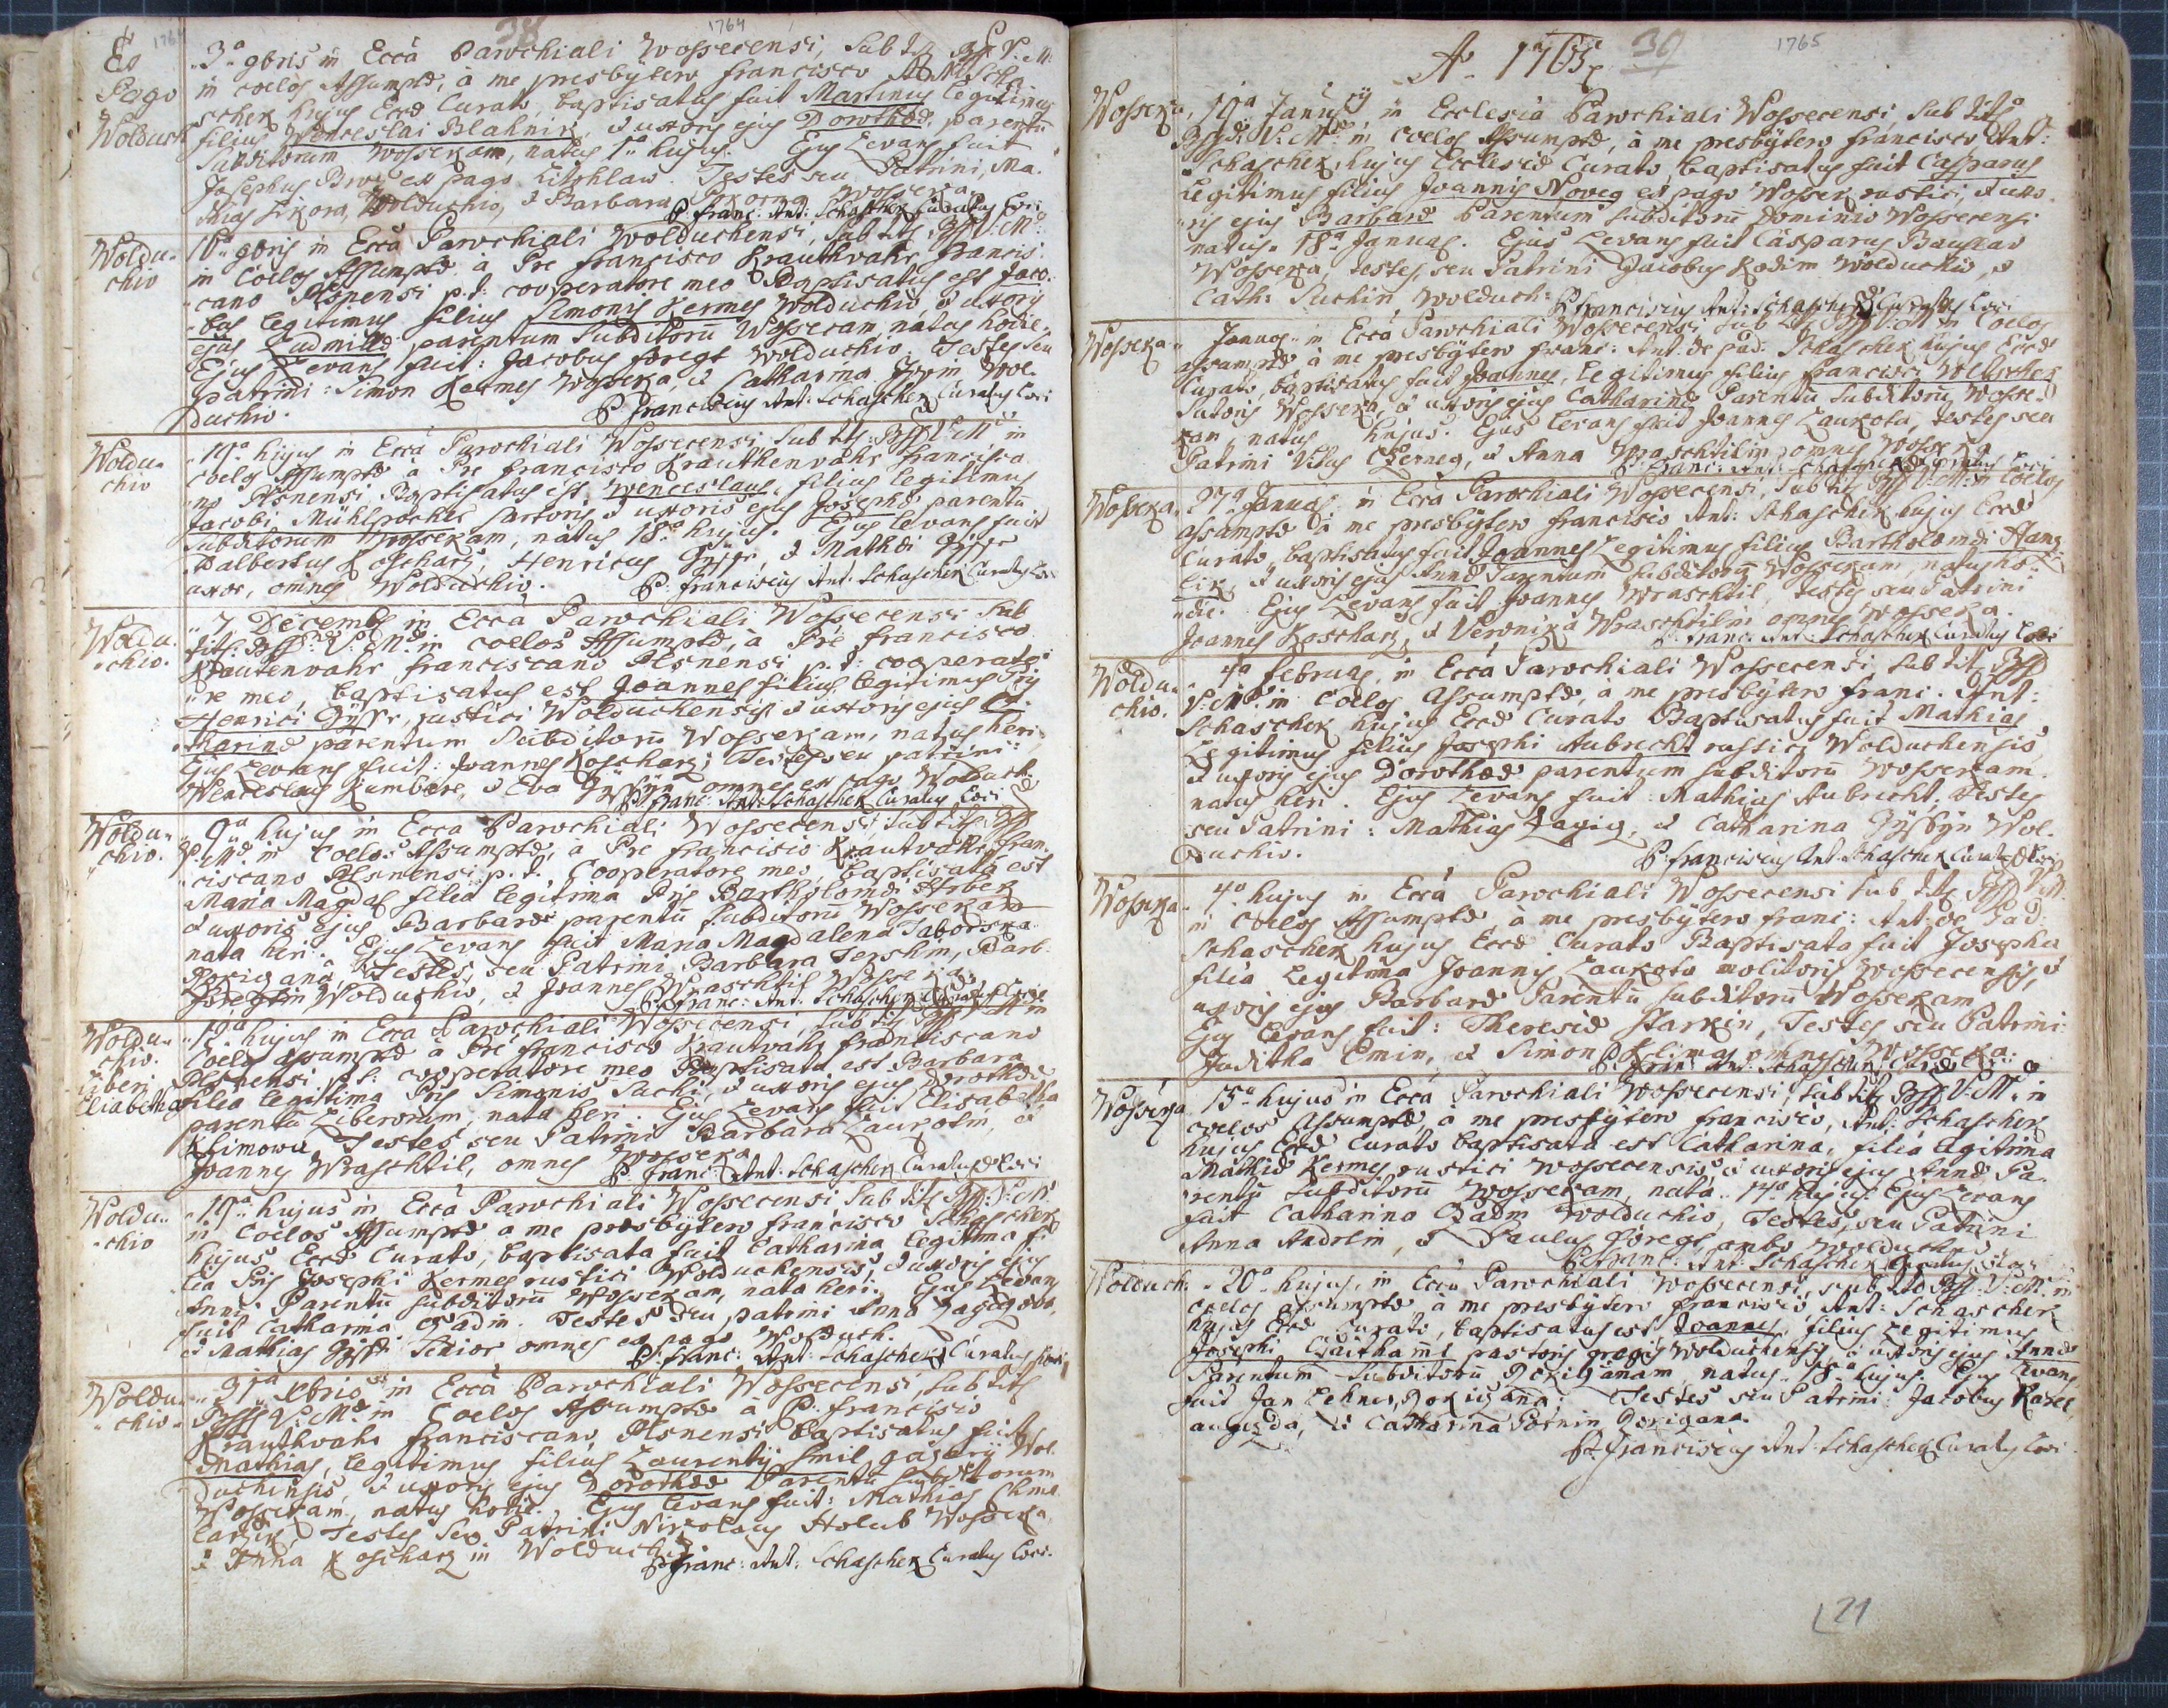 1764
38
1764
Ex
Pago
Wolduch
3a 9bris in Ecca Parochiali Wossecensi, sub tit. V. M.
in coelos Assumptae, à me presbytero Francisco Ant. Scha
schek hujus Eccae Curato, baptisatus fuit Martinus legitimus
filius Wenceslai Blahnik, & uxoris ejus Dorotheae, parentu
Subditorum Wossekam, natus 1a hujus. Ejus Levans fuit
Josephus ex pago Kitschlaw. Testes seu Patrini, Ma-
thias Sikora, Wolduchio, & Barbara Wosseka
P. Franc: Ant: Schaschek Curatus Loci
Woldu-
chio
16a 9bris in Ecca Parochiali Wolduchensi, sub tit. V: M:
in Coelos Assumptae à Pre Francisco Krauthvahr Francis-
cano Plsnensi p.t: cooperatore meo Baptisatus est Jaco-
bus legitimus filius Simonis Kermes Wolduchio, & uxoris
ejus Ludmillae, parentum Subditoru Wossecam, natus hodie.
Ejus Levans fuit: Jacobus Foregt Wolduchio, Testes seu
patrini: Simon Kermes Wosseka, & Catharina Wol-
duchio.
P. Franciscus Ant: Schaschek Curatus Loci
Woldu-
chio
19a hujus in Ecca Parochiali Wossecensi, sub tit: V: M: in
coelos Assumptae à Pre Francisco Krauthenvahr Francisca-
no Plsnensi Baptisatus est Wenceslaus, filius legitimus
Jacobi Mühlpocher sartoris & uxoris ejus Josephae parentu
Subditorum Wossekam, natus 18a hujus. Ejus levans fuit
Adalbertus Koscharz, Henricus & Mathaei
uxor, omnes Wolduchio. P. Franciscus Ant: Schaschek Curatus Loci
Woldu-
chio.
7 Decemb in Ecca Parochiali Wossecensi sub
tit: V: M: in coelos Assumptae, à Pre Francisco
Krautenvahr Franciscano Plsnensi p.t: cooperato-
re meo, baptisatus est Joannes filius legitimus
Henrici rustici Wolduchensis & uxoris ejus Ca-
tharinae parentum Subditoru Wossekam, natus heri.
Ejus Levans fuit: Joannes Koscharz, Testes seu patrini:
Wenceslaus Kumbere, & Eva omnes ex pago Wolduch
P. Franc: Ant: Schaschek Curatus Loci
Woldu-
chio.
9a hujus in Ecca Parochiali Wossecensi, sub tit:
V: M: in Coelos Assumptae, à Pre Francisco Krautvahr Fran-
ciscano Plsnensi p.t. Cooperatore meo, baptisata est
Maria Magdal filia legitima Pris Bartholomaei
& uxoris ejus Barbarae parentu Subditoru Wossekam
nata heri. Ejus Levans fuit Maria Magdalena Taborska
Testes, seu Patrini Barbara Terskin, Barb.
Wolduchio, & Joannes Wraschtil Wosseka
P. Franc: Ant: Schaschek Curatus Loci
Woldu-
chio.
Liberi
Eliabetha
hujus in Ecca Parochiali Wossecensi, sub tit V: M in
Coelos assumptae à Pre Francisco Krautvahr Franciscano
Plsnensi p.t: cooperatore meo Baptisata est Barbara
filia legitima Pris Simonis Suchi, & uxoris ejus Dorotheae
parentu Liberorum, nata heri. Ejus Levans fuit Elisabetha
Klimowa Testes seu Patrini Barbara Laukotin, &
Joannes Wraschtil, omnes Wosseka
P. Franc: Ant: Schaschek Curatus Loci
Woldu-
chio
19a hujus in Ecca Parochiali Wossecensi sub tit V: M:
in Coelos Assumptae à me presbytero Francisco Schaschek
hujus Eccae Curato, baptisata fuit Catharina legitima fi-
lia Pris Josephi Kermes rustici Wolduchensis, & uxoris ejus
Annae Parentu Subditoru Wossekam, nata heri. Ejus Levans
fuit Catharina Testes seu patrini Anna
& Mathias Senior omnes ex pago Wolduch.
P. Franc: Ant: Schaschek Curatus Loci
Woldu-
chio
31a Xbris in Ecca Parochiali Wossecensi, sub tit
V: M: in Coelos Assumptae à P. Francisco
Krauthvahr Franciscano, Plsnensi baptisatus fuit
Mathias, legitimus filius Laurentij Smil Wol-
duchensis, & uxoris ejus Dorotheae Parentu Subditorum
Wossekam, natus hodie. Ejus levans fuit: Mathias Chme-
larzik, Testes seu Patrini Nicolaus Holub Wosseka
& Anna Koscharz in Wolduchio
P. Franc: Ant: Schaschek Curatus Loci.
Ao 1765
39
1765
Wosseka
19a Januarij in Ecclesia Parochiali Wossecensi, sub tito
V: M: in Coelos Assumptae, à me presbytero Francisco Ant:
Schaschek, hujus Ecclesiae Curato, baptisatus fuit Casparus
Legitimus filius Joannis Noveg ex pago Wossek rustici, & uxo-
ris ejus Barbarae Parentum Subditoru Dominio Wossecensi
natus 18a Januar. Ejus Levans fuit Casparus
Wosseka, testes seu Patrini Jacobus Kodim Wolduchio, &
Cath: Suchin Wolduch:
P. Franciscus Ant: Schaschek Curatus Loci
Wosseka
Januar in Ecca Parochiali Wossecensi sub tit V: M in Coelos
assumptae à me presbytero Franc: Ant: de Pad: Schaschek hujus Eccae
Curato, baptisatus fuit Joannes, Legitimus filius Francisci
Sutoris Wosseka, & uxoris ejus Catharinae Parentu Subditoru Wosse-
kam, natus hujus. Ejus levans fuit Joannes Laukota, testes seu
Patrini Vitus Czerneg, & Anna Wraschtilin omnes Wosseka
P. Franc: Ant: Schaschek Curatus Loci
Wosseka
27a Januar. in Ecca Parochiali Wossecensi, sub tit V: M: in Coelos
assumptae à me presbytero Francisco Ant: Schaschek hujus Eccae
Curato, baptisatus fuit Joannes Legitimus filius Bartholomaei Hanz-
lik, & uxoris ejus Annae Parentum Subditoru Wossekam natus ho-
die. Ejus Levans fuit Joannes Wraschtil, testes seu Patrini
Joannes Koscharz, & Veronika Wraschtilin omnes Wosseka.
P. Franc: Ant: Schaschek Curatus Loci
Woldu-
chio.
4a Februar, in Ecca Parochiali Wossecensi, sub tit
V: M: in Coelos Assumptae, à me presbytero Franc. Ant:
Schaschek hujus Eccae Curato Baptisatus fuit Mathias
Legitimus filius Josephi Aubrecht rustici Wolduchensis,
& uxoris ejus Dorotheae parentum Subditoru Wossekam.
natus heri. Ejus Levans fuit Mathias Aubrecht. Testes
seu Patrini: Mathias & Catharina Wol-
duchio.
P. Franciscus Ant: Schaschek Curatus Loci
Wosseka
4a hujus in Ecca Parochiali Wossecensi sub tit V: M.
in Coelos Assumptae à me presbytero Franc: Ant: de Pad:
Schaschek hujus Eccae Curato Baptisata fuit Josepha
filia Legitima Joannis Laukota molitoris Wossecensis, &
uxoris ejus Barbarae Parentu Subditoru Wossekam
Ejus Levans fuit: Theresia Starkin, Testes seu Patrini
Juditha Emin, & Simon Klima, omnes Wosseka
P. Franc: Ant: Schaschek Curatus Loci
Wosseka
15a hujus in Ecca Parochiali Wossecensi, sub tit V: M: in
coelos Assumptae, à me presbytero Francisco, Ant: Schaschek
hujus Eccae Curato baptisata est Catharina, filia legitima
Mathiae Kermes rustici Wossecensis, & uxoris ejus Annae Pa-
rentu Subditoru Wossekam, nata 14a hujus. Ejus Levans
fuit Catharina Wolduchio, Testes, seu Patrini
Anna Andrlin, & Paulus Foregt ambo Wolduchio
P. Franc: Ant: Schaschek Curatus Loci
Wolduch.
20a hujus, in Ecca Parochiali Wossecensi, sub tito V: M: in
Coelos Assumptae à me presbytero Francisco Ant: Schaschek
hujus Eccae Curato, baptisatus est Joannes filius Legitimus
Josephi pastoris gregis Wolduchensis & uxoris ejus Annae
Parentum Subditoru natus 18a hujus. Ejus Levans
fuit Jan Lehner, Testes seu Patrini: Jacobus
& Catharina
P. Franciscus Ant: Schaschek Curatus Loci
21